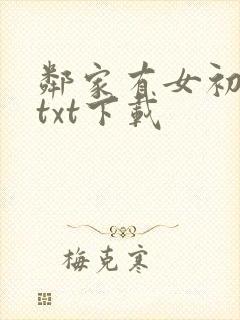 鄰家有女初
txt下載
梅克寒